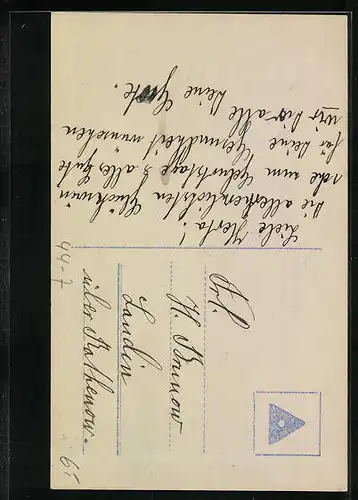 Liebe Herta!
Die allerherzlichsten Glückwün
sche zum Geburtstage & alles Gute
für deine Gesundheit wünschen
wir hier alle deine Grete.
Frl.
H. Brunow
Landin
über Rathenow.
44-7
65